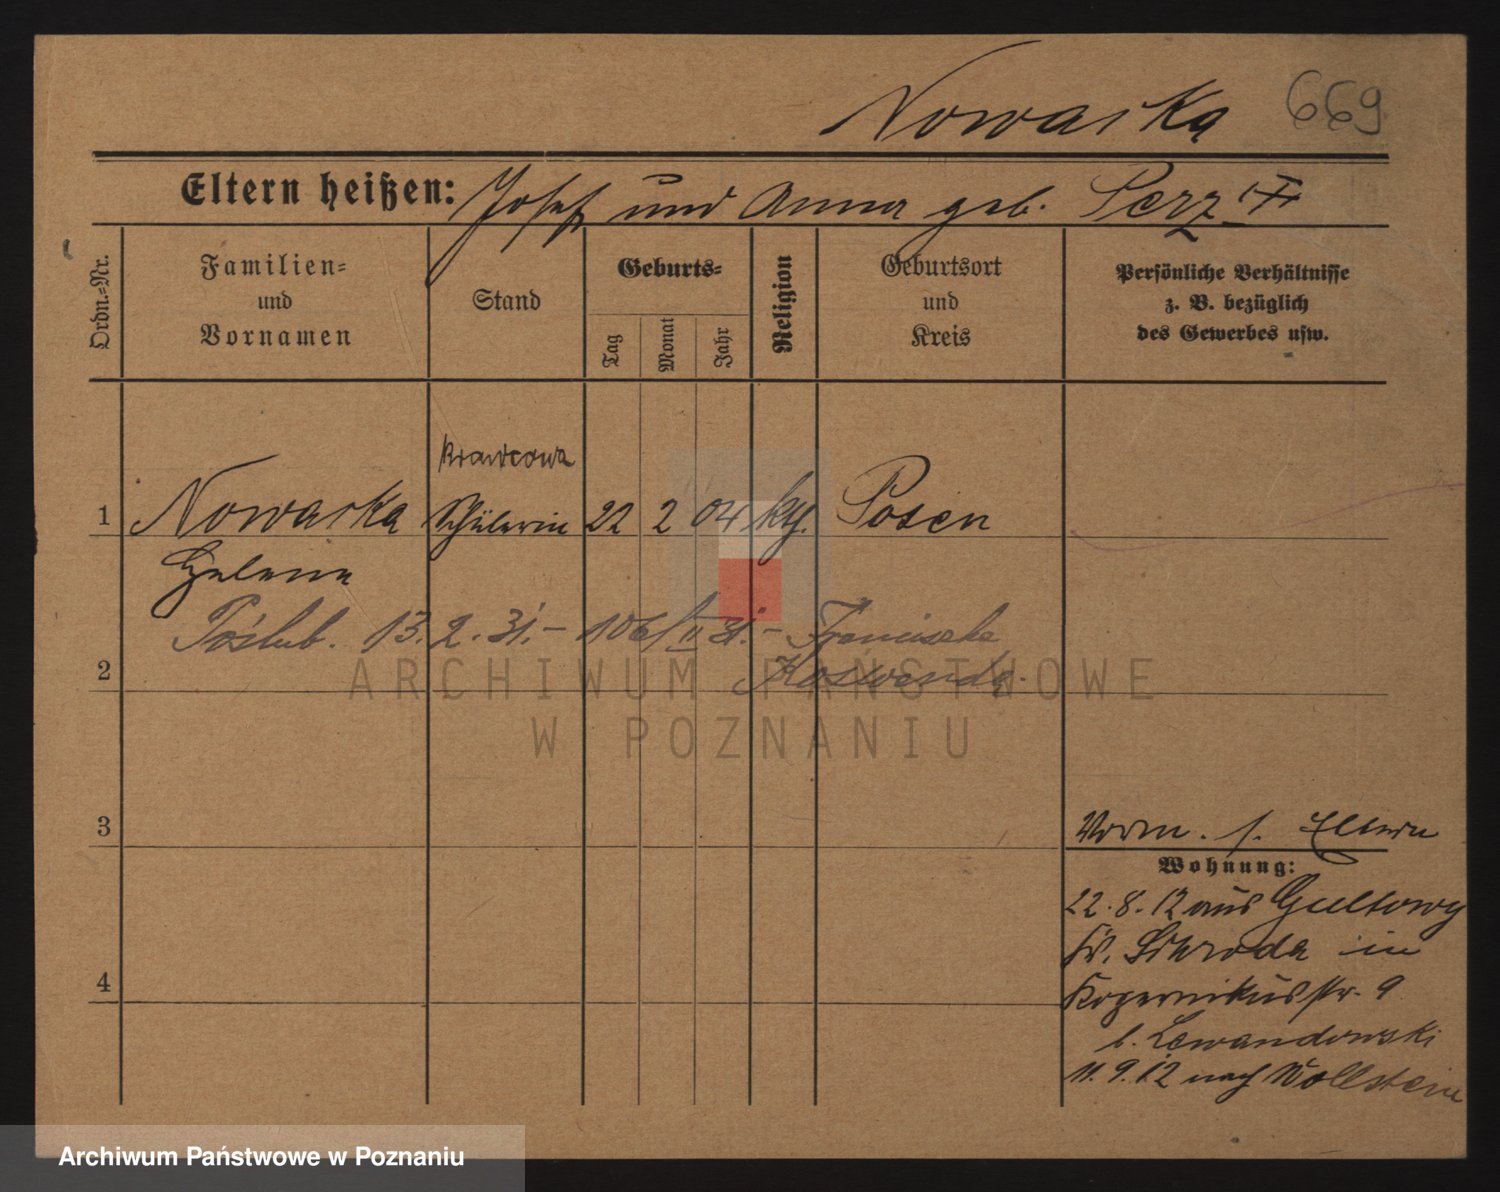 Nowacka 669
Eltern heißen: Josef und Anna geb. Perz
Ordn.-Nr.
Familien-
und
Vornamen
Stand
Geburts-
Tag
Monat
Jahr
Religion
Geburtsort
und
Kreis
Persönliche Verhältnisse
z. B. bezüglich
des Gewerbes usw.
Krawcowa
1 Nowacka Schülerin 22 2 04 kth. Posen
Helene
Poślub. 13.2.31.- 106/II 31.- Franciszka
2
ARCHIWUM PAŃSTWOWE
W POZNANIU
3
Vorm. s. Eltern
Wohnung:
22.8.12 aus Gultowy
Kr. Schroda in
4
Kopernikusstr. 9
b. Lewandowski
11.9.12 nach Wollstein
Archiwum Państwowe w Poznaniu